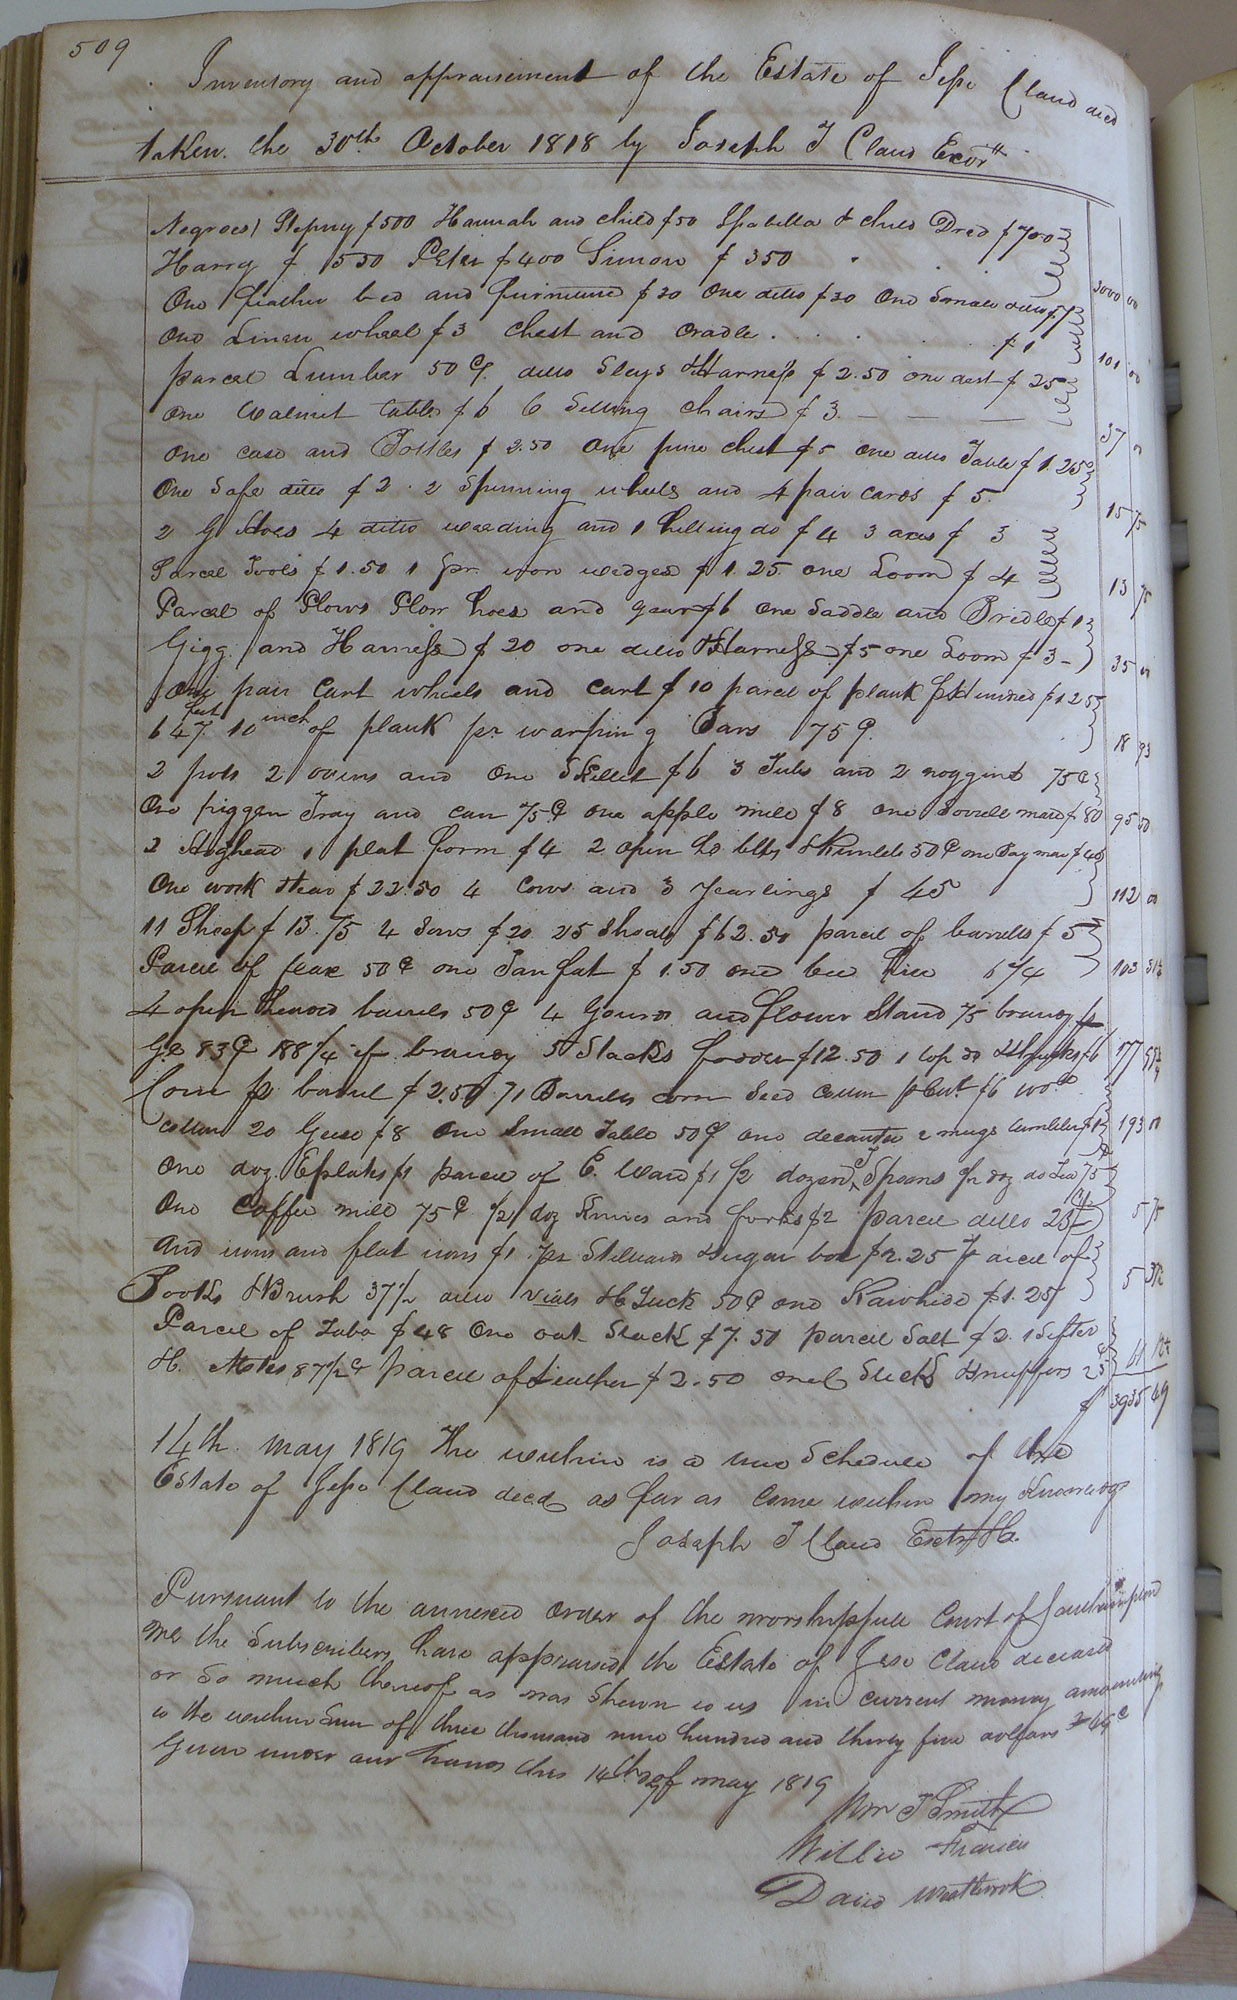 509
Inventory and appraisement of the Estate of Jesse Claud decd
taken the 30th October 1818 by Joseph T Claud Excr
Negroes) $500 Hannah and child $50 Isabella & child Dred $700
Harry $ 550 Peter $400 Simon $ 350
3000 00
One feather bed and furniture $30 one ditto $30 One Small ditto
One Linen wheel $3 Chest and Cradle $ 1
101 00
parcel Lumber 50 C. ditto Slays & Harness $ 2.50 one desk $ 25
One Walnut table $6 6 Setting chairs $ 3
37 0
One case and Bottles $ 2.50 one pine chest $5 one ditto Table $ 1.25
One Safe ditto $ 2. 2 Spinning wheels and 4 pair cards $ 5.
15 75
2 G Hoes 4 ditto weeding and 1 hilling do $ 4 3 axes $ 3
Parcel Tools $ 1.50 1 pr iron wedges $ 1.25 one Loom $ 4
13 75
Parcel of Plows Plow hoes and gear $6 one Saddle and Bridle $1
Gigg and Harness $ 20 one ditto Harness $5 one Loom $ 3
35 0
One pair Cart wheels and cart $ 10 parcel of plank $1 25
647 feet 10 inch of plank pr warping Bars 75 C.
18 93
2 pots 2 ovens and One Skillet $6 3 Tubs and 2 noggins 75 C
One piggen Tray and can 75 C one apple mill $8 one Sorrell mare $80
95 50
2 Hoghead 1 plat form $4 2 open 50 C one Bay mare $40
One work Stear $ 22.50 4 Cows and 3 yearlings $ 45
112 00
11 Sheep $ 13.75 4 Sows $20 25 Shoats $62.50 parcel of barrells $ 5
Parcel of flax 50 C one Tan fat $ 1.50 one bee hive 6/4
103
4 open headed barrels 50 C 4 Gourds and flower Stand 75 brandy
83 C 188 3/4 of brandy 5 Stacks fodder $12.50 1 top do & Shucks $6
177
Corn pr barrel $ 2.50 71 Barrells corn Seed cotton pr Cwt. $6
cotton 20 Geese $8 One Small Table 50 C one decanter 2 mugs tumbler $1
193 00
One doz. E plates $1 parcel of E. Ware $1 1/2 dozen T Spoons 1/2 doz do Tea 75
One Coffee mill 75 C 1/2 doz Knives and forks $2 parcel ditto 25
5 75
And irons and flat irons $1 pr Stilliards & Sugar box $2.25 Parcel of
Books & Brush 37 1/2 ditto vials 50 C one Rawhide $1.25
5 37 1/2
Parcel of $48 One oat Stack $7.50 parcel Salt $2. 1 Sifter
87 1/2 C parcel of Leather $ 2.50 one Slick
61
$ 3935 69
14th May 1819 The within is a true Schedule of the
Estate of Jesse Claud decd as far as Come within my Knowledge
Joseph T Claud
Pursuant to the annexed Order of the worshipfull Court of Southampton
We the Subscribers have appraised the Estate of Jesse Claud deceased
or So much thereof as was Shewn to us in current money amounting
to the within Sum of three thousand nine hundred and thirty five dollars & 69 C
Given under our hands this 14th of May 1819
Wm T Smith
Willie Francis
David Westbrook